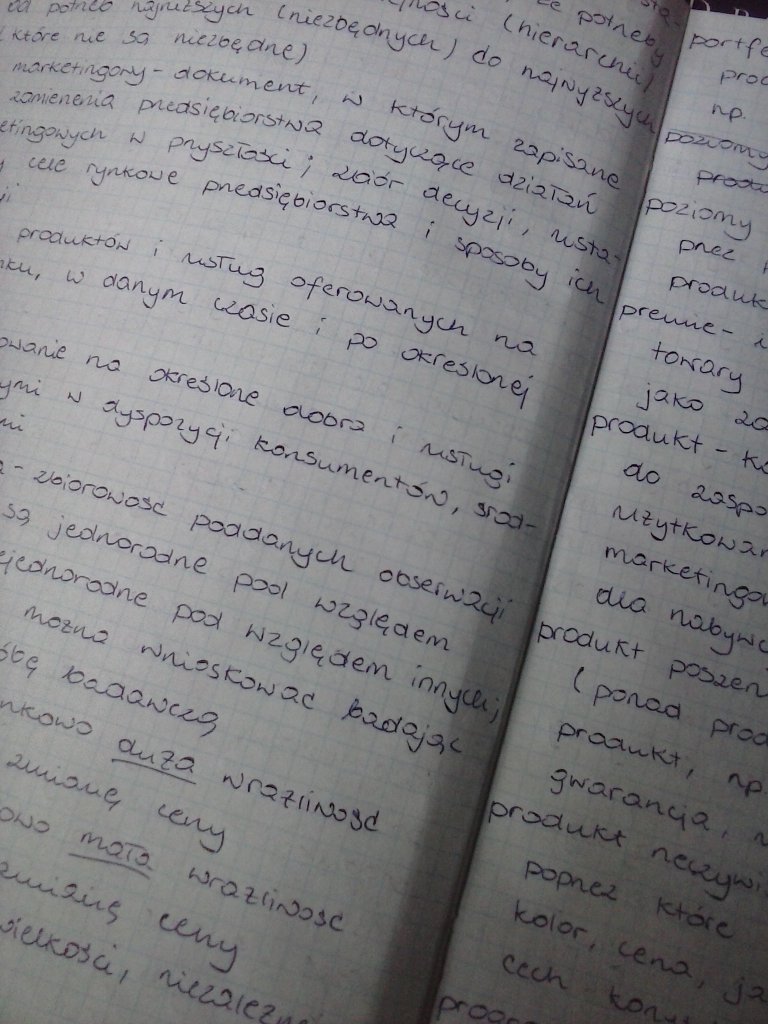 potrzeby
od potrzeb najniższych (niezbędnych) do najwyższych
(które nie są niezbędne)
marketingowy - dokument, w którym zapisane
zamierzenia przedsiębiorstwa dotyczące działań
etingowych w przyszłości; zbiór decyzji, usta-
cele rynkowe przedsiębiorstwa i sposoby ich
ji
produktów i usług oferowanych na
nku, w danym czasie i po określonej
owanie na określone dobra i usługi
ymi w dyspozycji konsumentów, środ-
mi
a - zbiorowość poddanych obserwacji
są jednorodne pod względem
ejednorodne pod względem innych;
można wnioskować badając
óbę badawczą
nkowo duża wrażliwość
zmianę ceny
owo mała wrażliwość
zmianę ceny
wielkości, niezależne
portfe
prod
np.
poziomy
produ
poziomy
przez p
produk
premie - i
towary
jako za
produkt - ko
do zaspo
użytkowan
marketingow
dla nabywc
produkt poszerz
(ponad prod
produkt, np.
gwarancja, n
produkt rzeczywi
poprzez które
kolor, cena, ja
cech kony
progr